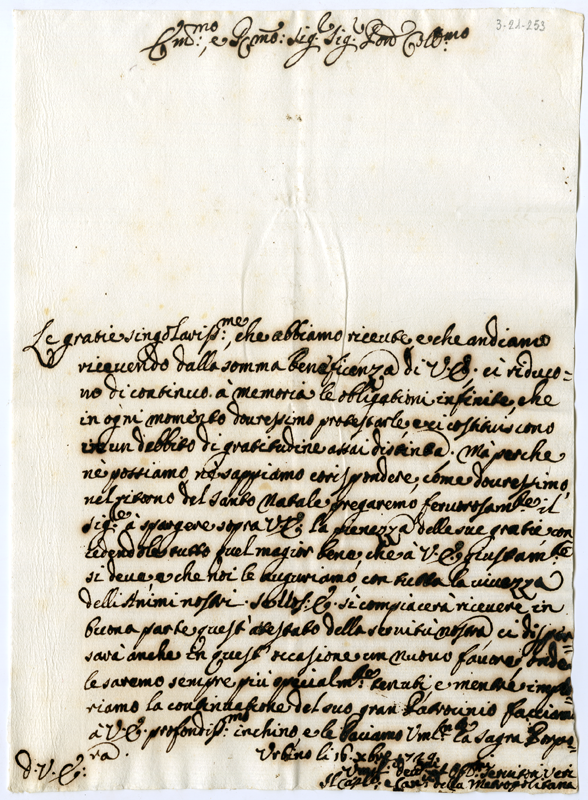 3-21-253
Em.mo, e R.mo: Sig.r Sig.r Pnd Coll.mo
Le gratie singolariss.me, che abbiamo riceute, e che andiamo
riceuendo dalla somma beneficenza di V. E. ci riduco=
no di continuo à memoria le obligationi infinite, che
in ogni momento douressimo protestarle, e ci costituiscono
in un debbito di gratitudine assai distinta. Mà perche
nè possiamo nè sappiamo corispondere, come douressimo,
nel ritorno del santo Natale pregaremo feruorosam.te il
Sig.re à spargere sopra V. E. la pienezza delle sue gratie, con
cedendole tutto quel magior bene, che à V. E. giustam.te
si deue, e che noi le auguriamo con tutta la viuezza
delli Animi nostri. Se V. E. si compiacerà riceuere in
buona parte quest' atestato della seruitù nostra, ci dispen
sarà anche in quest' occasione un nuouo fauore, onde
le saremo sempre più specialm.te tenuti, e mentre implo
riamo la continuatione del suo gran Patrocinio facciamo
à V. E. profondiss.mo inchino, e le baciamo Vmilm.te la Sagra Porpo
ra.
d. V. E.
Vrbino li 16. xbre 1729.
Vmil.mi deu.mi Obb.mi Seruitori Veri
Il Capit.o, e Can.ci della Metropolitana